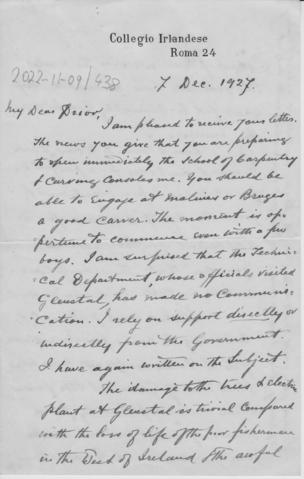 Collegio Irlandese
Roma 24
2022-11-09/438
7 Dec. 1927.
My Dear Prior,
I am pleased to receive your letter.
The news you give that you are preparing
to open immediately the School of Carpentry
& Carving Consoles me. You should be
able to Engage at Malines or Bruges
a good Carver. The moment is op-
pertune to commence even with a few
boys. I am surprised that the Techni-
cal Department, whose officials visited
Glenstal, has made no Communi-
cation. I rely on support directly or
indirectly from the Government.
I have again written on the Subject.
The damage to the trees & electric
plant at Glenstal is trivial Compared
with the loss of life of the poor fishermen
in the West of Ireland & the awful